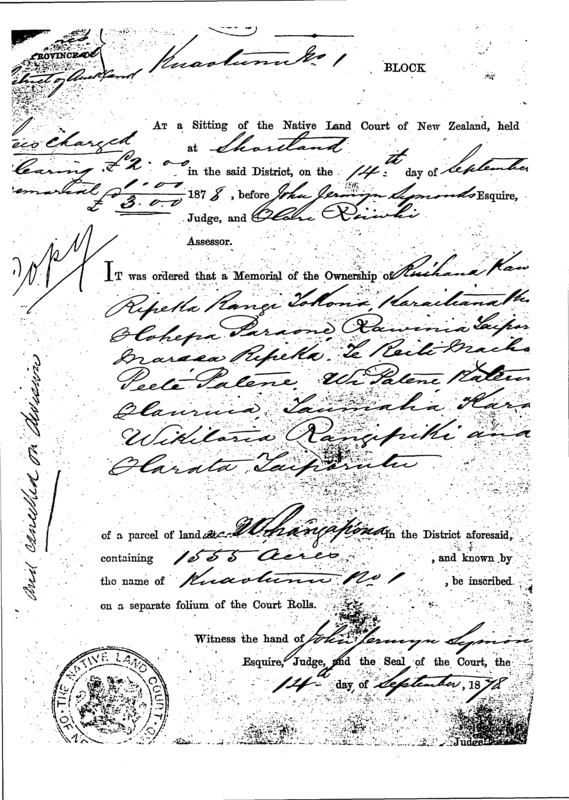 PROVINCE
District of Auckland
Kuaotunu No 1 BLOCK
AT a Sitting of the Native Land Court of New Zealand, held
Fees Charged
at Shortland
Hearing £2.00
in the said District, on the 14th day of September
Memorial 1.00
1878, before John Jermyn Symonds Esquire,
£3.00
Judge, and
Assessor.
Copy
IT was ordered that a Memorial of the Ownership of Ruihana Kaw
Ripeka Rangi Tokona, Karaitiana
Hohepa Paraone, Rawinia Taipor
Ripeka. Te Reiti
Peeti Patene, Wi Patene
Taumaha Kara
Wikitoria Rangipiki and
Harata Taiporutu
and cancelled on division
of a parcel of land at Whangapoua in the District aforesaid,
containing 1555 Acres, and known by
the name of Kuaotunu No 1, be inscribed
on a separate folium of the Court Rolls.
Witness the hand of John Jermyn Symon
Esquire, Judge, and the Seal of the Court, the
14th day of September, 1878
THE NATIVE LAND COURT OF N
Judge